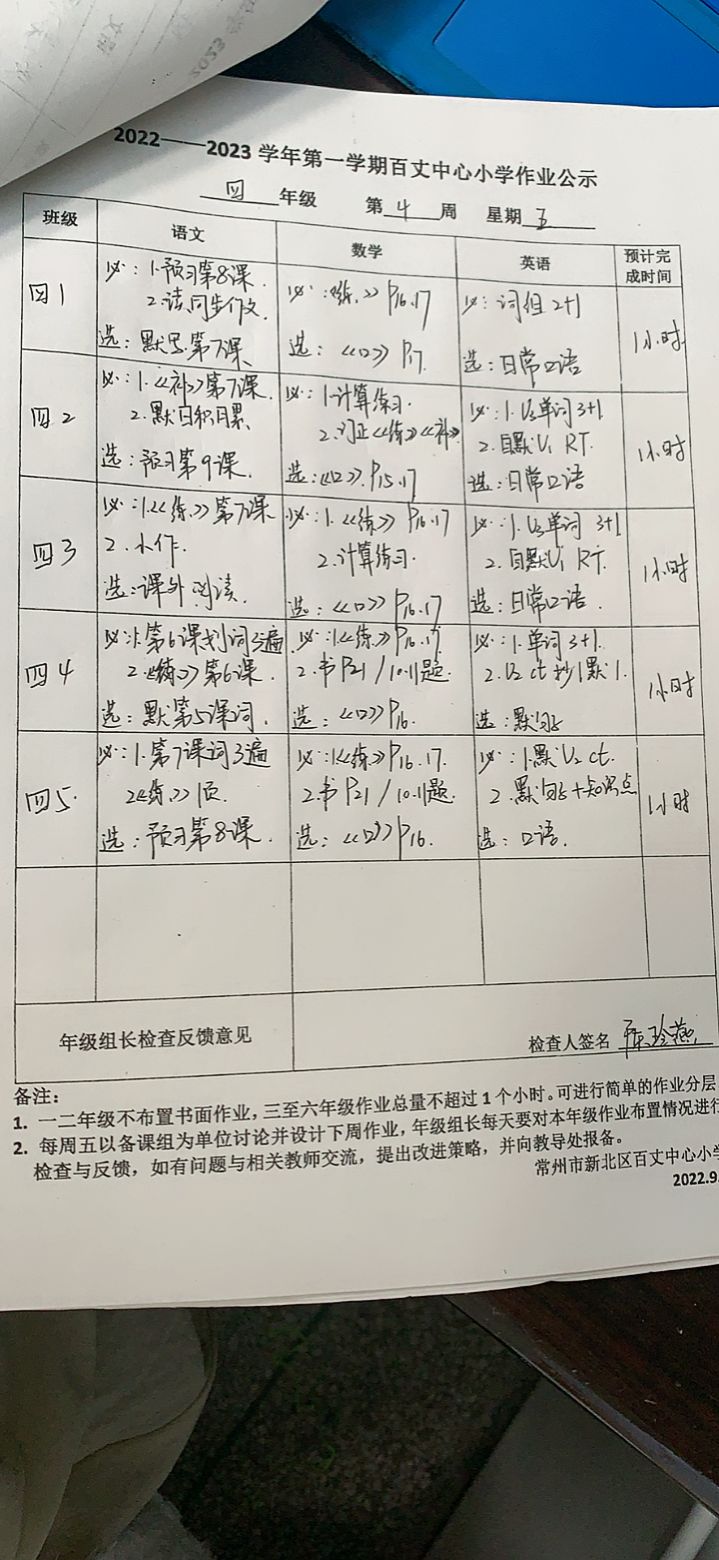 2022——2023 学年第一学期百丈中心小学作业公示
四 年级 第 4 周 星期 五
班级 语文 数学 英语 预计完成时间
四1
必：1.预习第8课.
2.读同步作文.
选：默写第7课.
必：《练》P16.17
选：《口》P17.
必：词组2+1
选：日常口语
1小时.
四2
必：1.《补》第7课.
2.默日积月累.
选：预习第9课.
必：1.计算练习.
2.订正《练》《补》
选：《口》P15.17
必：1.U3单词3+1.
2.自默U1 RT.
选：日常口语
1小时
四3
必：1.《练》第7课
2.小作.
选：课外阅读.
必：1.《练》P16.17
2.计算练习.
选：《口》P16.17
必：1.U3单词 3+1
2.自默U1 RT.
选：日常口语.
1小时
四4
必：1.第6课划词3遍
2.《练》第6课.
选：默第5课词.
必：1.《练》P16.17.
2.书P21/10.11题.
选：《口》P16.
必：1.单词3+1.
2.U2 ct抄1默1.
选：默句子
1小时
四5.
必：1.第7课词3遍
2《练》1页.
选：预习第8课.
必：1《练》P16.17.
2.书P21/10.11题.
选：《口》P16.
必：1.默U2 ct.
2.默句子+知识点
选：口语.
1小时
年级组长检查反馈意见
检查人签名
备注：
1. 一二年级不布置书面作业，三至六年级作业总量不超过 1 个小时。可进行简单的作业分层
2. 每周五以备课组为单位讨论并设计下周作业，年级组长每天要对本年级作业布置情况进行
检查与反馈，如有问题与相关教师交流，提出改进策略，并向教导处报备。
常州市新北区百丈中心小学
2022.9.